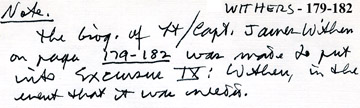 Note. WITHERS - 179-182
The biog. of Ft/Capt. James Withers
on page 179-182 was made to put
into Excursus IX: Withers, in the
event that it was needed.